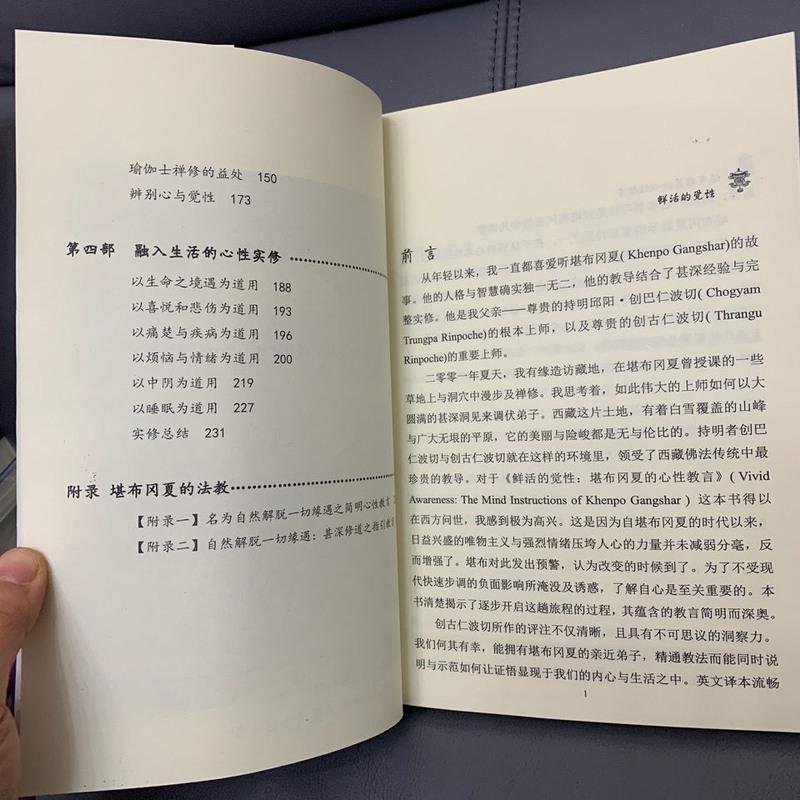 瑜伽士禅修的益处 150
辨别心与觉性 173
第四部 融入生活的心性实修
以生命之境遇为道用 188
以喜悦和悲伤为道用 193
以痛楚与疾病为道用 196
以烦恼与情绪为道用 200
以中阴为道用 219
以睡眠为道用 227
实修总结 231
附录 堪布冈夏的法教
【附录一】名为自然解脱一切缘遇之简明心性教言
【附录二】自然解脱一切缘遇：甚深修道之指引教言
鲜活的觉性
前言
从年轻以来，我一直都喜爱听堪布冈夏( Khenpo Gangshar)的故
事。他的人格与智慧确实独一无二，他的教导结合了甚深经验与完
整实修。他是我父亲——尊贵的持明邱阳·创巴仁波切( Chogyam
Trungpa Rinpoche)的根本上师，以及尊贵的创古仁波切( Thrangu
Rinpoche)的重要上师。
二零零一年夏天，我有缘造访藏地，在堪布冈夏曾授课的一些
草地上与洞穴中漫步及禅修。我思考着，如此伟大的上师如何以大
圆满的甚深洞见来调伏弟子。西藏这片土地，有着白雪覆盖的山峰
与广大无垠的平原，它的美丽与险峻都是无与伦比的。持明者创巴
仁波切与创古仁波切就在这样的环境里，领受了西藏佛法传统中最
珍贵的教导。对于《鲜活的觉性：堪布冈夏的心性教言》( Vivid
Awareness: The Mind Instructions of Khenpo Gangshar ) 这本书得以
在西方问世，我感到极为高兴。这是因为自堪布冈夏的时代以来，
日益兴盛的唯物主义与强烈情绪压垮人心的力量并未减弱分毫，反
而增强了。堪布对此发出预警，认为改变的时候到了。为了不受
现代快速步调的负面影响所淹没及诱惑，了解自心是至关重要的。本
书清楚揭示了逐步开启这趟旅程的过程，其蕴含的教言简明而深奥。
创古仁波切所作的评注不仅清晰，且具有不可思议的洞察力。
我们何其有幸，能拥有堪布冈夏的亲近弟子，精通教法而能同时说
明与示范如何让证悟显现于我们的内心与生活之中。英文译本流畅
1